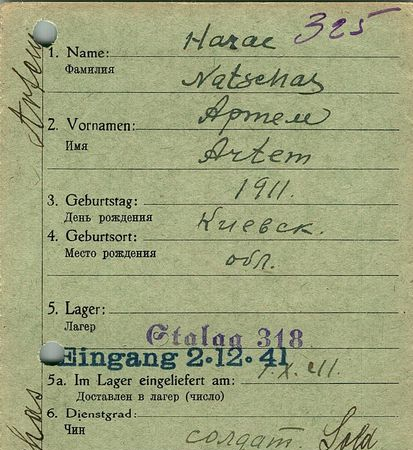 325
1. Name: Начас
Фамилия Natschas
2. Vornamen: Артем
Имя Artem
3. Geburtstag: 1911.
День рождения
4. Geburtsort: Киевск.
Место рождения обл.
5. Lager:
Лагер
Stalag 318
Eingang 2·12·41
5a. Im Lager eingeliefert am:
Доставлен в лагер (число)
6. Dienstgrad:
Чин солдат. Sold
Artem